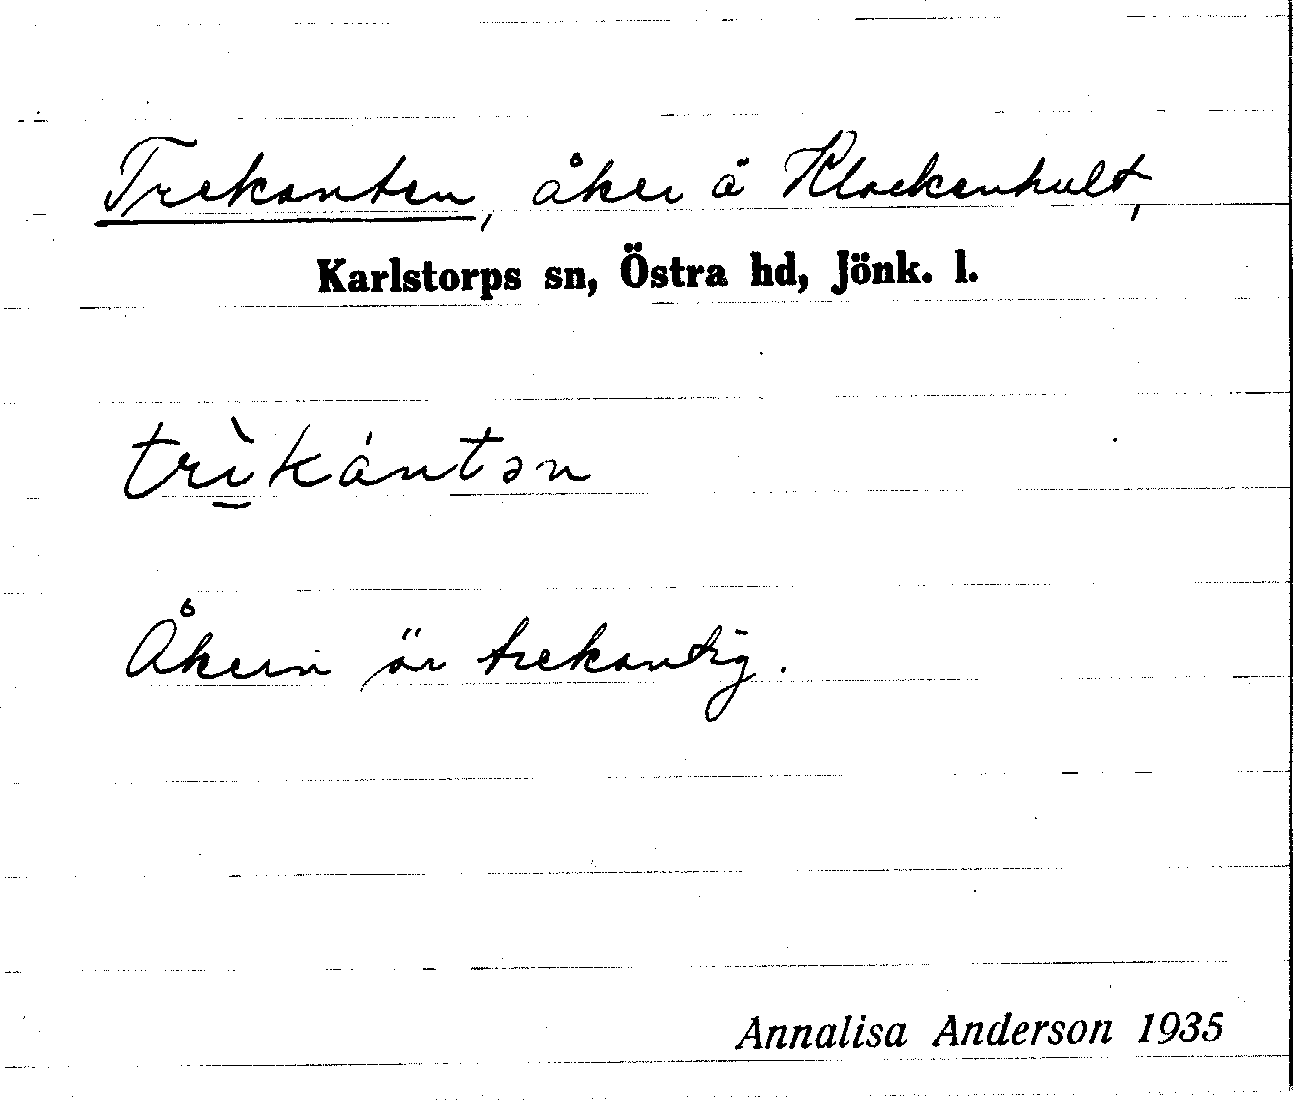 Trekanten, åker å Klockenhult,
Karlstorps sn, Östra hd, Jönk. l.
trı̱̀kántən
Åkern är trekantig.
Annalisa Anderson 1935